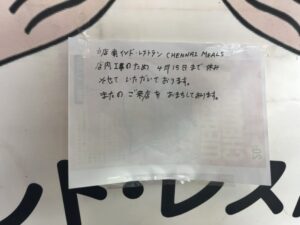 当店南インド・レストラン CHENNAI MEALS
店内工事のため 4月15日まで休み
させていただいております。
またのご来店をおまちしております。
ンド・レス